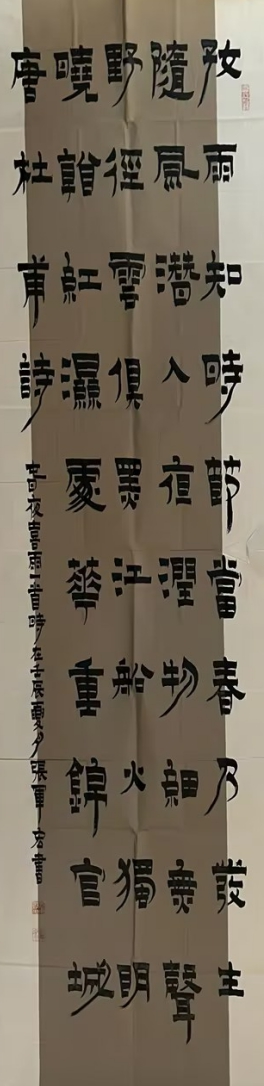 好雨知時節當春乃發生
隨風潛入夜潤物細無聲
野徑雲俱黑江船火獨明
曉看紅濕處華重錦官城
唐杜甫詩春夜喜雨一首時在壬辰夏夕張軍宏書